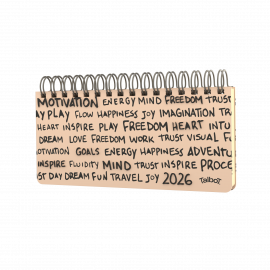 MOTIVATION ENERGY MIND FREEDOM TRUST
AY PLAY FLOW HAPPINESS JOY IMAGINATION TR
HEART INSPIRE PLAY FREEDOM HEART INTU
DREAM LOVE FREEDOM WORK TRUST VISUAL F
MOTIVATION GOALS ENERGY HAPPINESS ADVENTU
INSPIRE FLUIDITY MIND TRUST INSPIRE PROCE
ST DAY DREAM FUN TRAVEL JOY 2026